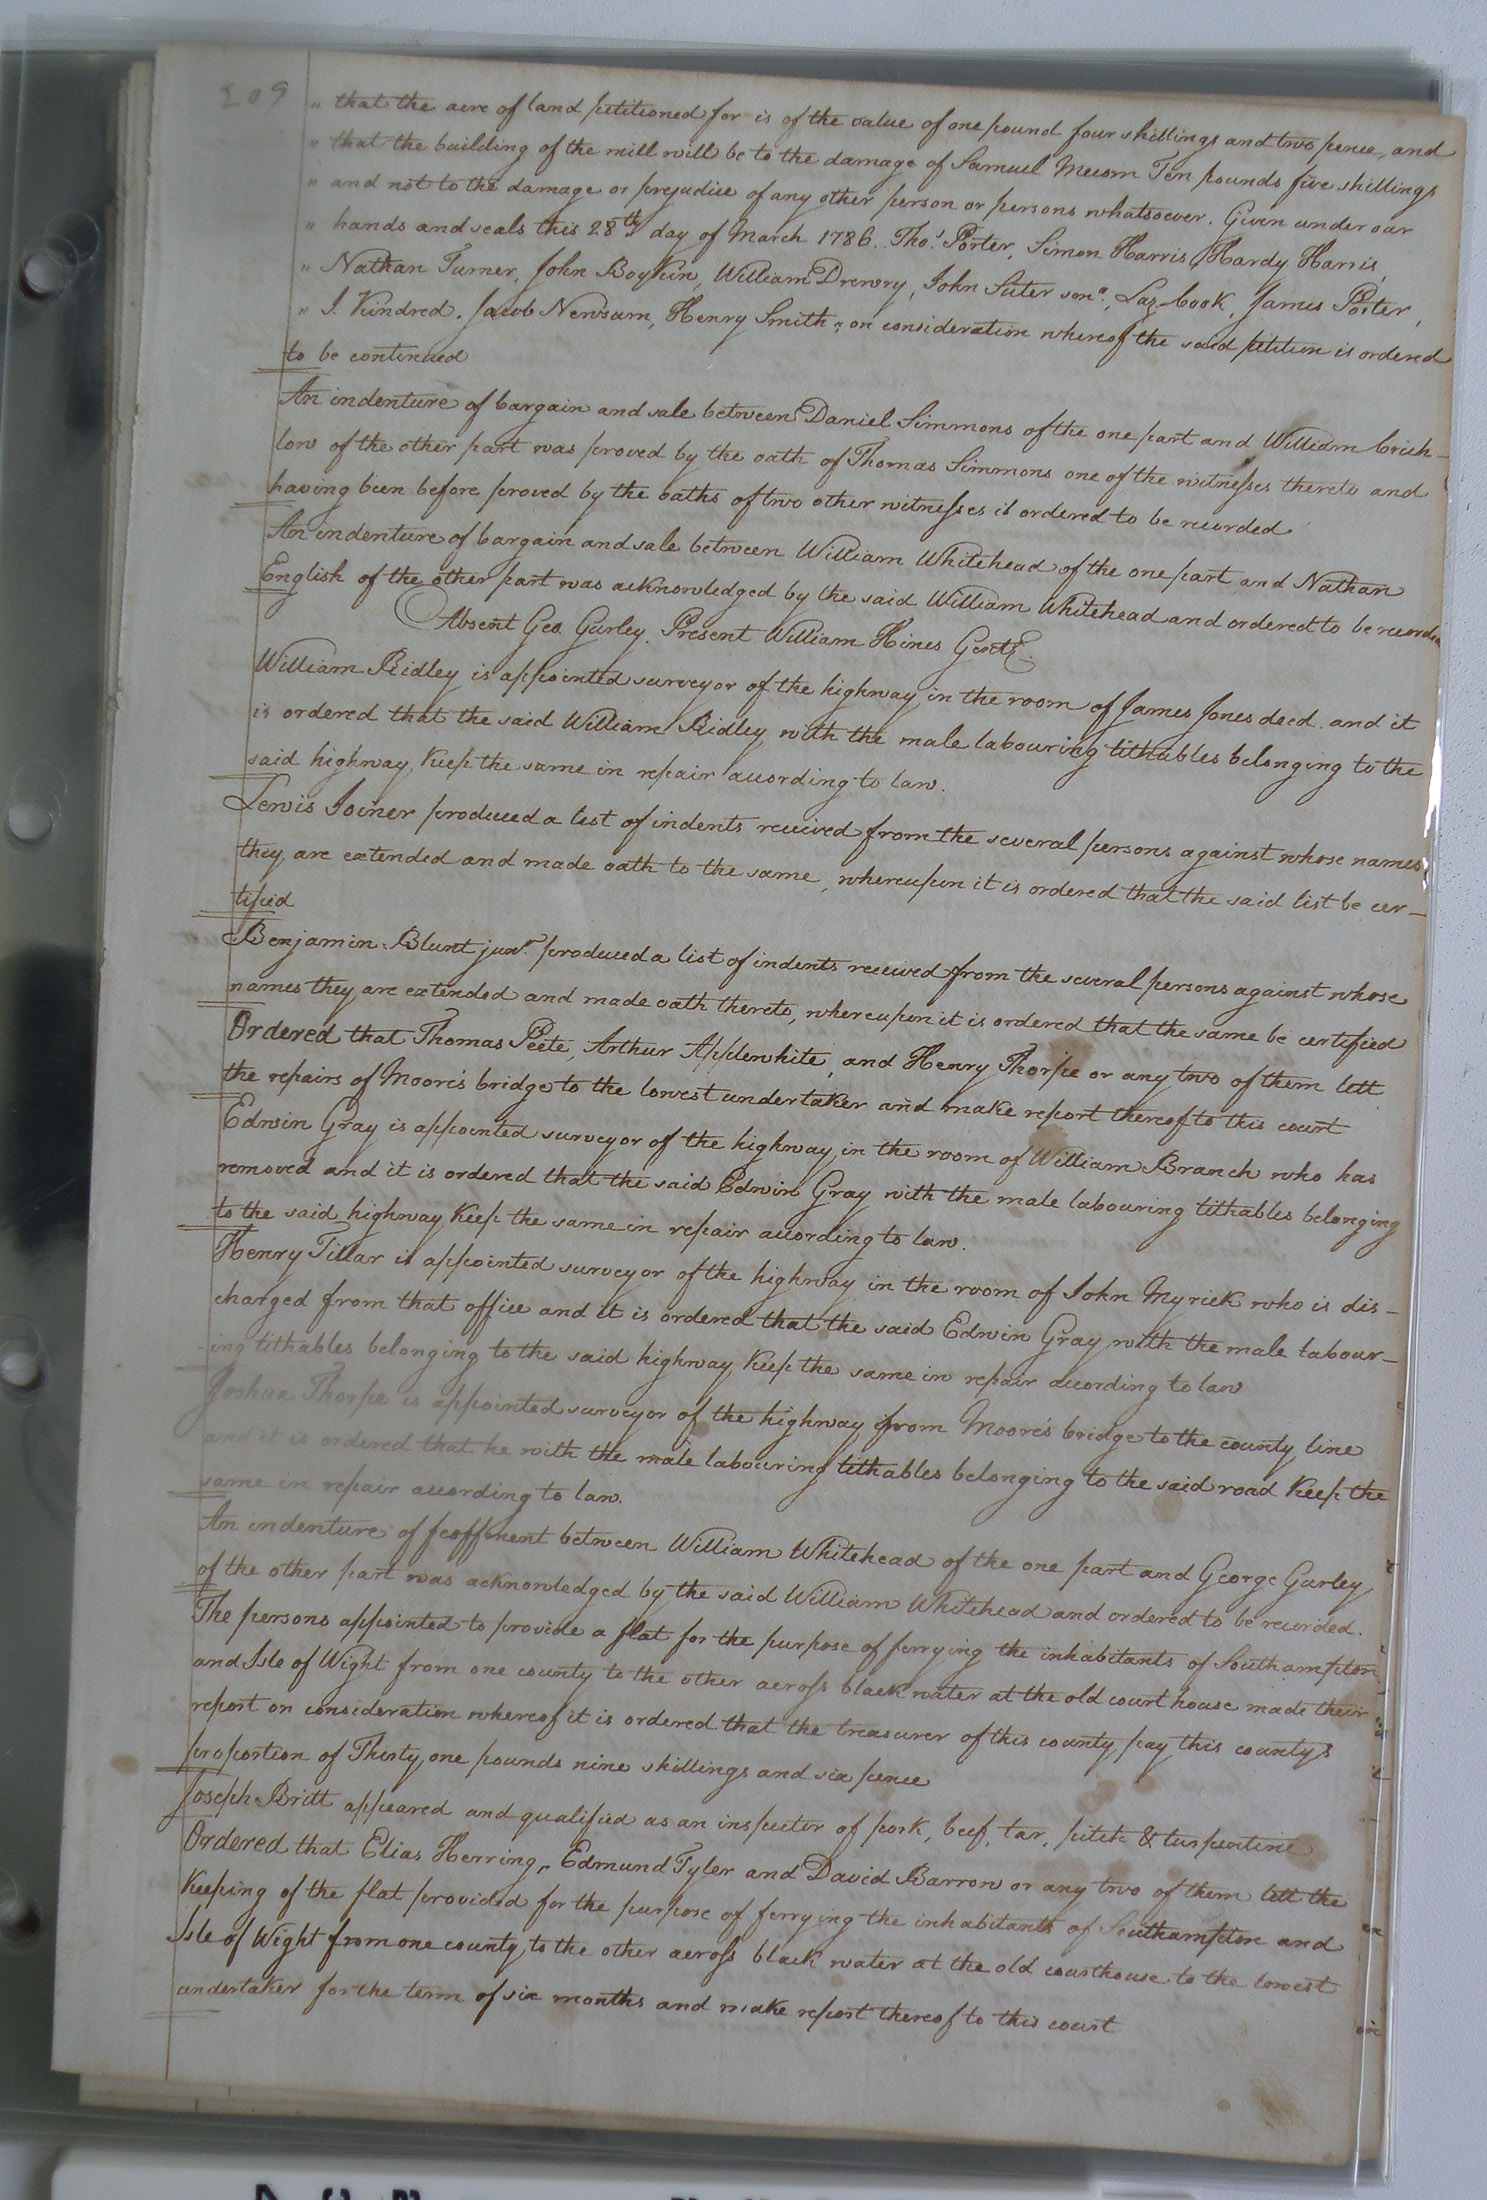 209
" that the acre of land petitioned for is of the value of one pound four shillings and two pence, and
" that the building of the mill will be to the damage of Samuel Mecom Ten pounds five shillings
" and not to the damage or prejudice of any other person or persons whatsoever. Given under our
" hands and seals this 28th day of March 1786. Thos. Porter, Simon Harris, Hardy Harris,
" Nathan Turner, John Boykin, William Drewry, John Suter senr., Laz. Cook, James Porter,
" J. Kindred, Jacob Newsum, Henry Smith " on consideration whereof the said petition is ordered
to be continued
An indenture of bargain and sale between Daniel Simmons of the one part and William Crich-
low of the other part was proved by the oath of Thomas Simmons one of the witnesses thereto and
having been before proved by the oaths of two other witnesses is ordered to be recorded
An indenture of bargain and sale between William Whitehead of the one part and Nathan
English of the other part was acknowledged by the said William Whitehead and ordered to be recorded
Absent Geo. Gurley. Present William Hines Gent.
William Ridley is appointed surveyor of the highway in the room of James Jones decd. and it
is ordered that the said William Ridley with the male labouring tithables belonging to the
said highway, keep the same in repair according to law.
Lewis Joiner produced a list of indents received from the several persons against whose names
they are extended and made oath to the same, whereupon it is ordered that the said list be cer-
tified
Benjamin Blunt junr. produced a list of indents received from the several persons against whose
names they are extended and made oath thereto, whereupon it is ordered that the same be certified
Ordered that Thomas Peete, Arthur Applewhite, and Henry Thorpe or any two of them lett
the repairs of Moore's bridge to the lowest undertaker and make report thereof to this court
Edwin Gray is appointed surveyor of the highway in the room of William Branch who has
removed and it is ordered that the said Edwin Gray with the male labouring tithables belonging
to the said highway keep the same in repair according to law.
Henry Tillar is appointed surveyor of the highway in the room of John Myrick who is dis-
charged from that office and it is ordered that the said Edwin Gray with the male labour-
ing tithables belonging to the said highway keep the same in repair according to law
Joshua Thorpe is appointed surveyor of the highway from Moore's bridge to the county line
and it is ordered that he with the male labouring tithables belonging to the said road keep the
same in repair according to law.
An indenture of feoffment between William Whitehead of the one part and George Gurley
of the other part was acknowledged by the said William Whitehead and ordered to be recorded.
The persons appointed to provide a flat for the purpose of ferrying the inhabitants of Southampton
and Isle of Wight from one county to the other across black water at the old court house made their
report on consideration whereof it is ordered that the treasurer of this county pay this county's
proportion of Thirty one pounds nine shillings and six pence
Joseph Britt appeared and qualified as an inspector of pork, beef, tar, pitch & turpentine
Ordered that Elias Herring, Edmund Tyler and David Barrow or any two of them lett the
keeping of the flat provided for the purpose of ferrying the inhabitants of Southampton and
Isle of Wight from one county to the other across black water at the old courthouse to the lowest
undertaker for the term of six months and make report thereof to this court